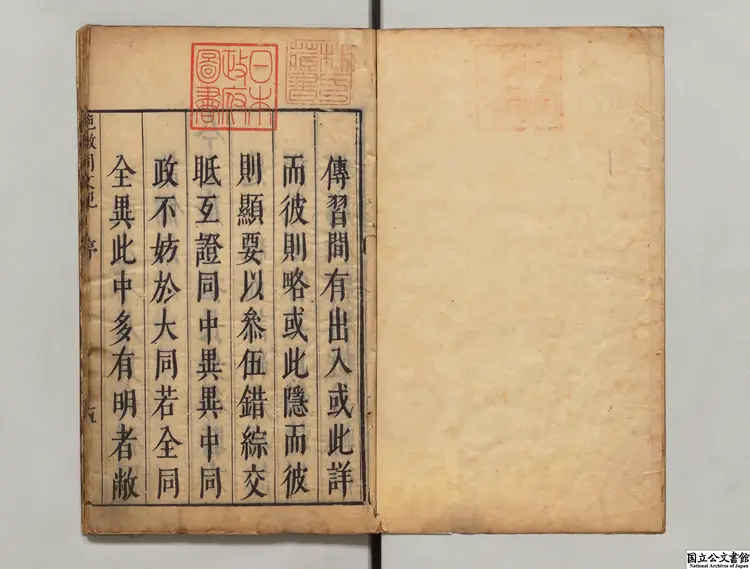 林氏藏書
日本政府圖書
傳習間有出入或此詳
而彼則略或此隱而彼
則顯要以叅伍錯綜交
眡互證同中異異中同
政不妨於大同若全同
全異此中多有明者敝
国立公文書館
National Archives of Japan